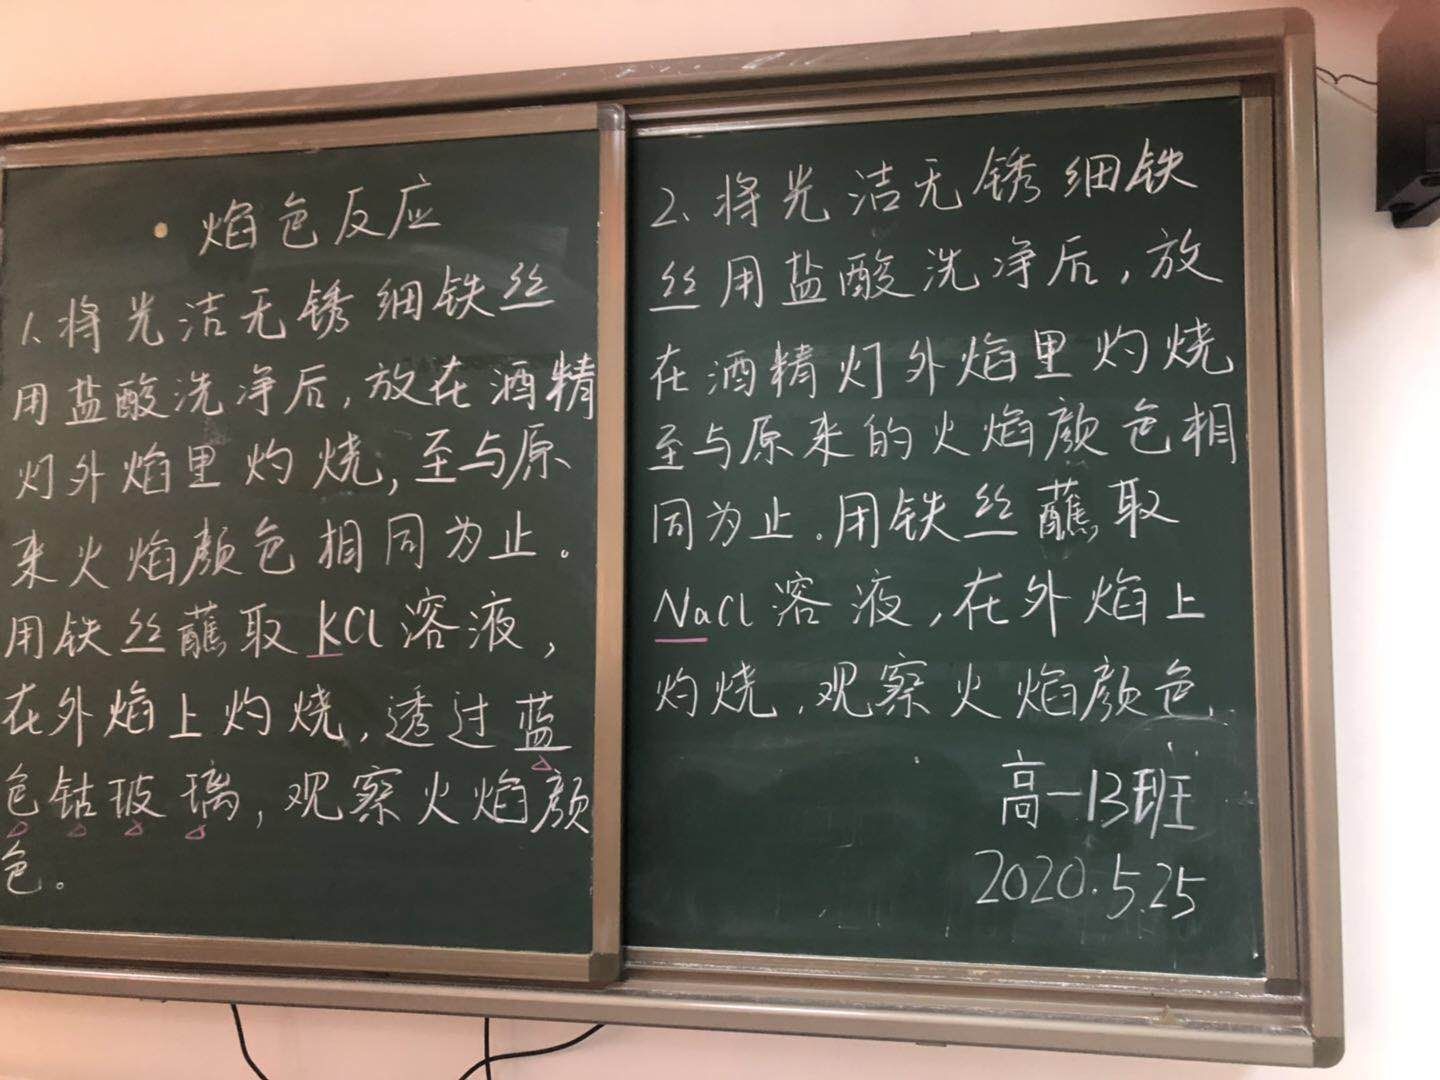 焰色反应
1、将光洁无锈细铁丝
用盐酸洗净后，放在酒精
灯外焰里灼烧，至与原
来火焰颜色相同为止。
用铁丝蘸取KCl溶液，
在外焰上灼烧，透过蓝
色钴玻璃，观察火焰颜
色。
2、将光洁无锈细铁
丝用盐酸洗净后，放
在酒精灯外焰里灼烧
至与原来的火焰颜色相
同为止。用铁丝蘸取
NaCl溶液，在外焰上
灼烧，观察火焰颜色
高一13班
2020.5.25